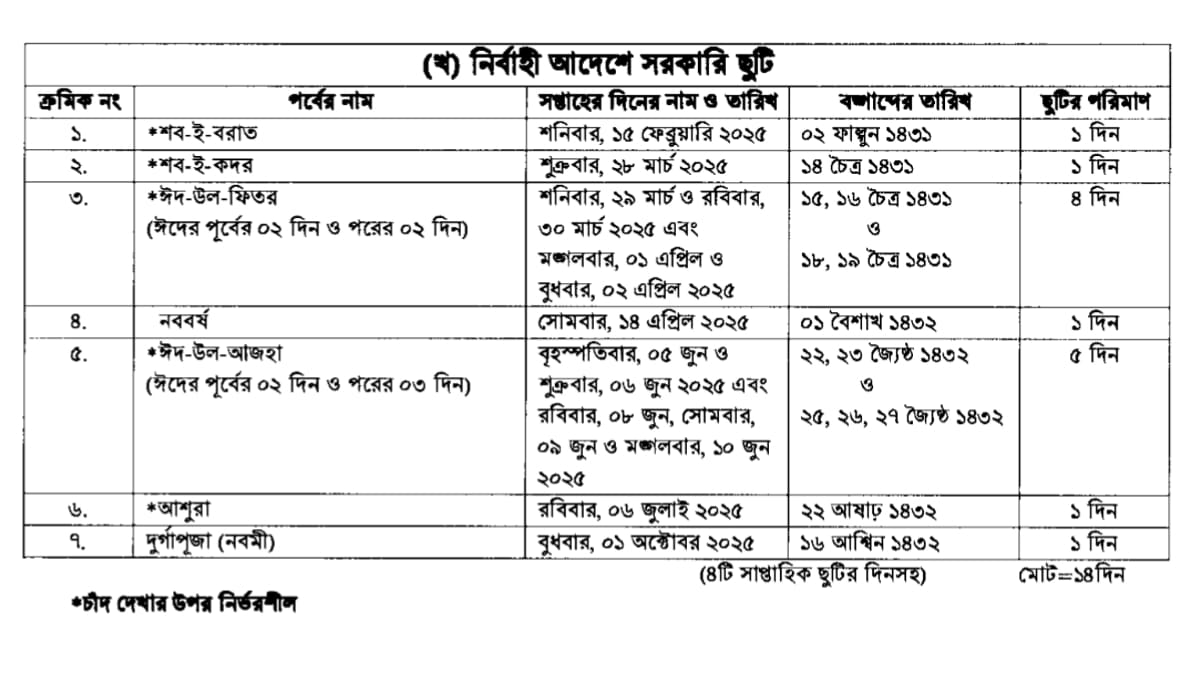 (খ) নির্বাহী আদেশে সরকারি ছুটি
ক্রমিক নং পর্বের নাম সপ্তাহের দিনের নাম ও তারিখ বঙ্গাব্দের তারিখ ছুটির পরিমাণ
১. *শব-ই-বরাত শনিবার, ১৫ ফেব্রুয়ারি ২০২৫ ০২ ফাল্গুন ১৪৩১ ১ দিন
২. *শব-ই-কদর শুক্রবার, ২৮ মার্চ ২০২৫ ১৪ চৈত্র ১৪৩১ ১ দিন
৩. *ঈদ-উল-ফিতর শনিবার, ২৯ মার্চ ও রবিবার, ১৫, ১৬ চৈত্র ১৪৩১ ৪ দিন
(ঈদের পূর্বের ০২ দিন ও পরের ০২ দিন) ৩০ মার্চ ২০২৫ এবং ও
মঙ্গলবার, ০১ এপ্রিল ও ১৮, ১৯ চৈত্র ১৪৩১
বুধবার, ০২ এপ্রিল ২০২৫
৪. নববর্ষ সোমবার, ১৪ এপ্রিল ২০২৫ ০১ বৈশাখ ১৪৩২ ১ দিন
৫. *ঈদ-উল-আজহা বৃহস্পতিবার, ০৫ জুন ও ২২, ২৩ জ্যৈষ্ঠ ১৪৩২ ৫ দিন
(ঈদের পূর্বের ০২ দিন ও পরের ০৩ দিন) শুক্রবার, ০৬ জুন ২০২৫ এবং ও
রবিবার, ০৮ জুন, সোমবার, ২৫, ২৬, ২৭ জ্যৈষ্ঠ ১৪৩২
০৯ জুন ও মঙ্গলবার, ১০ জুন
২০২৫
৬. *আশুরা রবিবার, ০৬ জুলাই ২০২৫ ২২ আষাঢ় ১৪৩২ ১ দিন
৭. দুর্গাপূজা (নবমী) বুধবার, ০১ অক্টোবর ২০২৫ ১৬ আশ্বিন ১৪৩২ ১ দিন
(৪টি সাপ্তাহিক ছুটির দিনসহ) মোট=১৪দিন
*চাঁদ দেখার উপর নির্ভরশীল